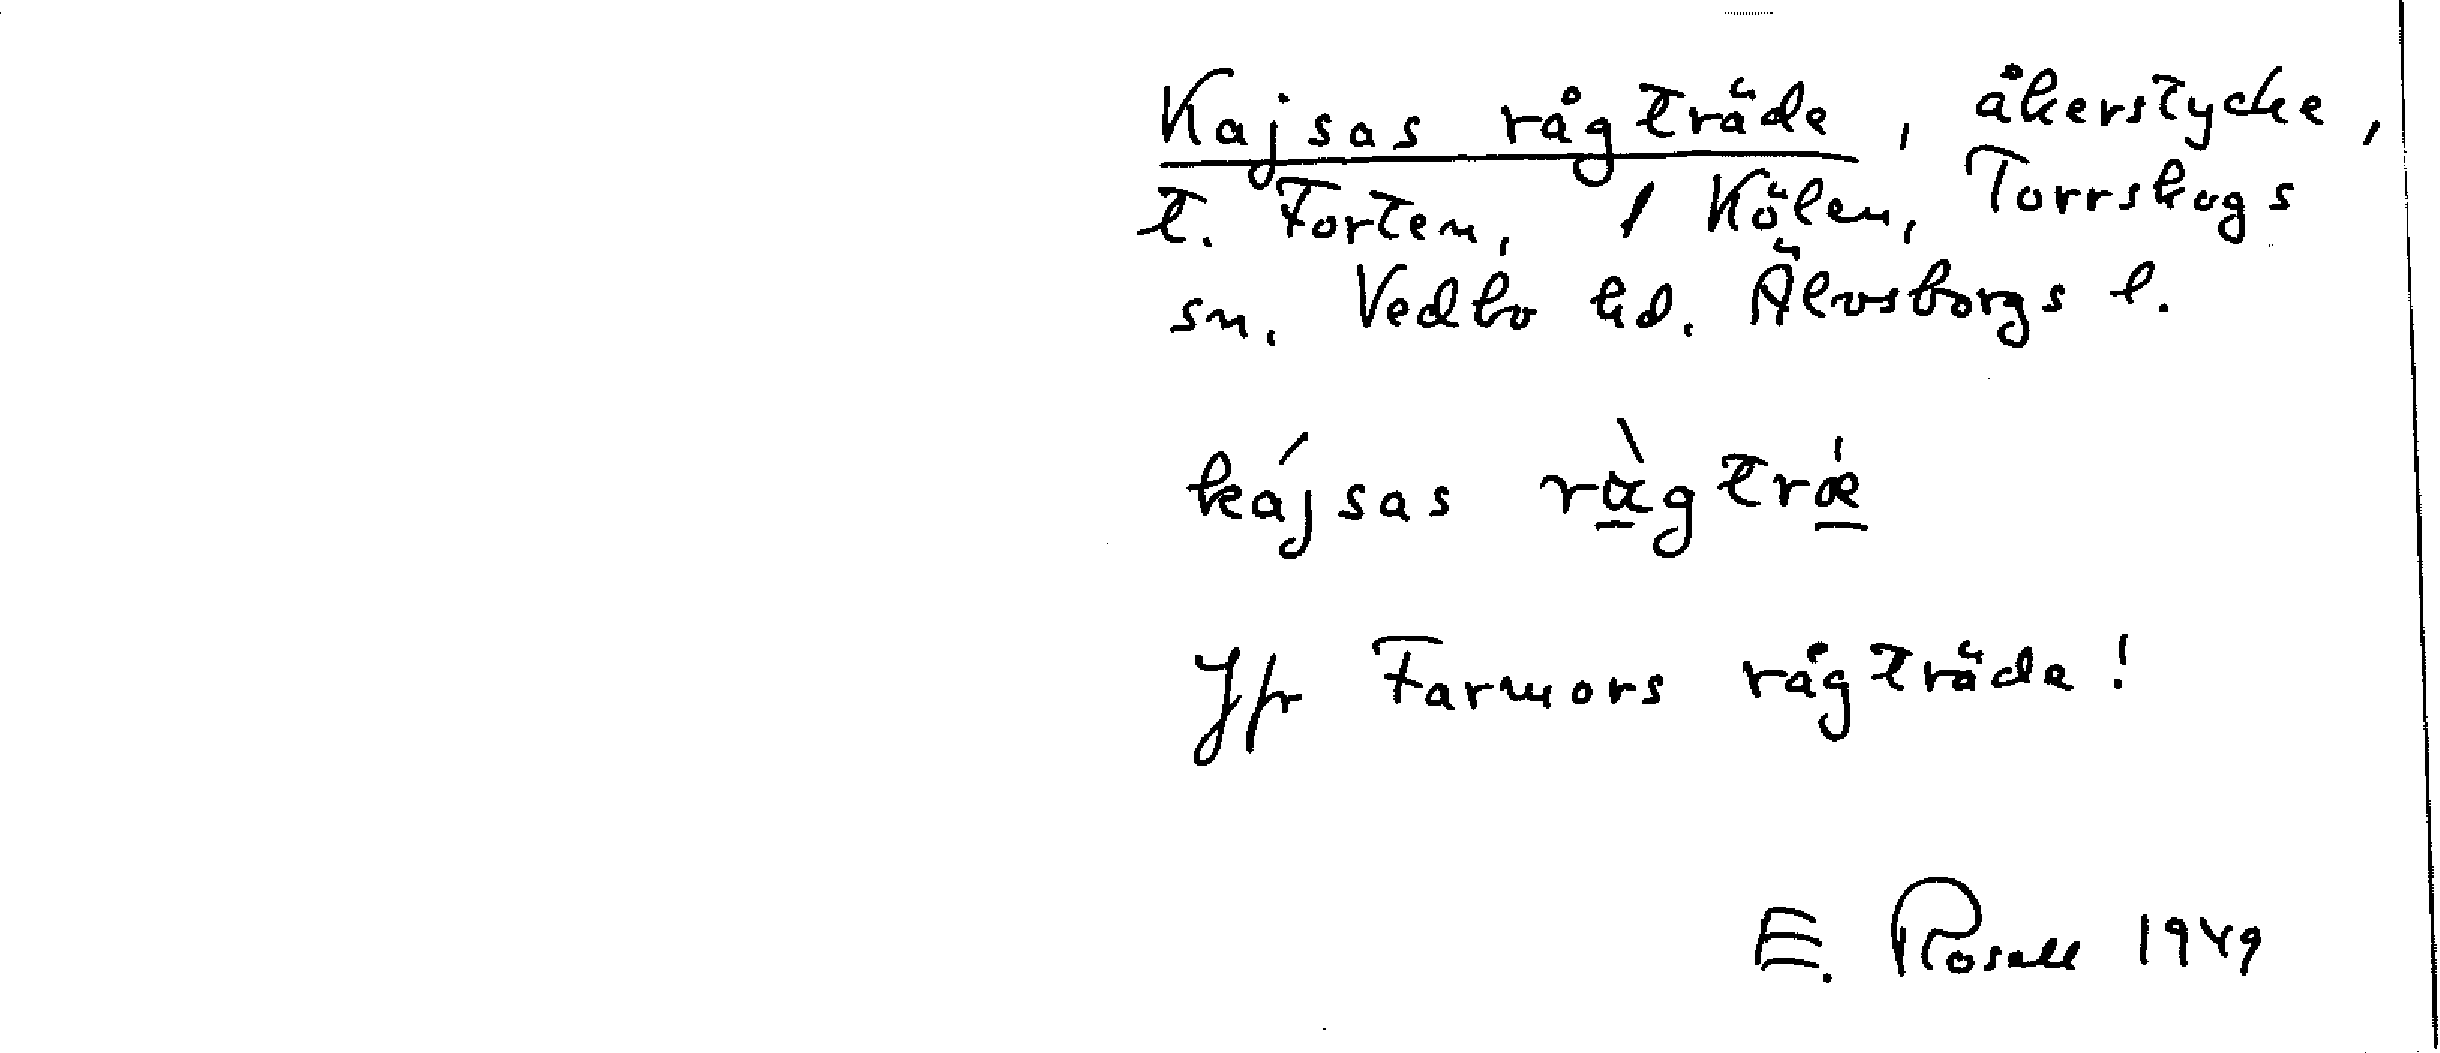 Kajsas rågträde, åkerstycke,
t. Forten, 1 Kölen, Torrskogs
sn. Vedbo hd. Älvsborgs l.
kájsas rɑ̀gtrǽ
Jfr Farmors rågträda!
E. Rosell 1949